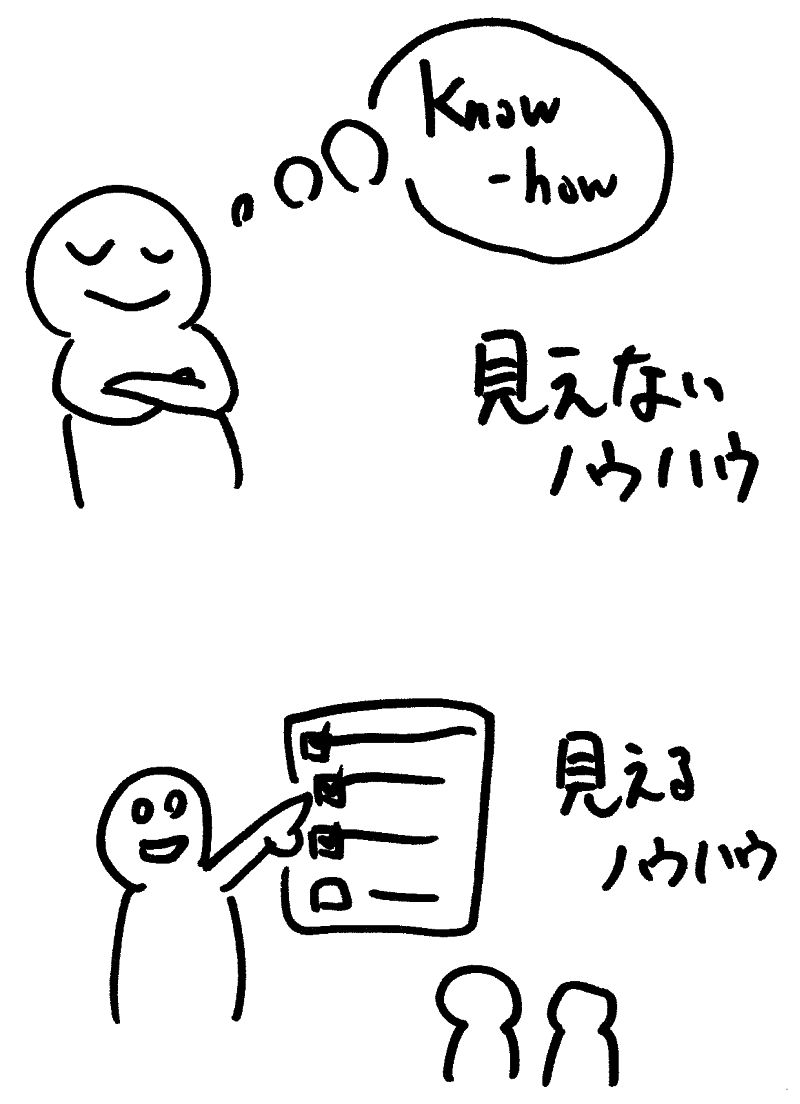 Know
-how
見えない
ノウハウ
見える
ノウハウ